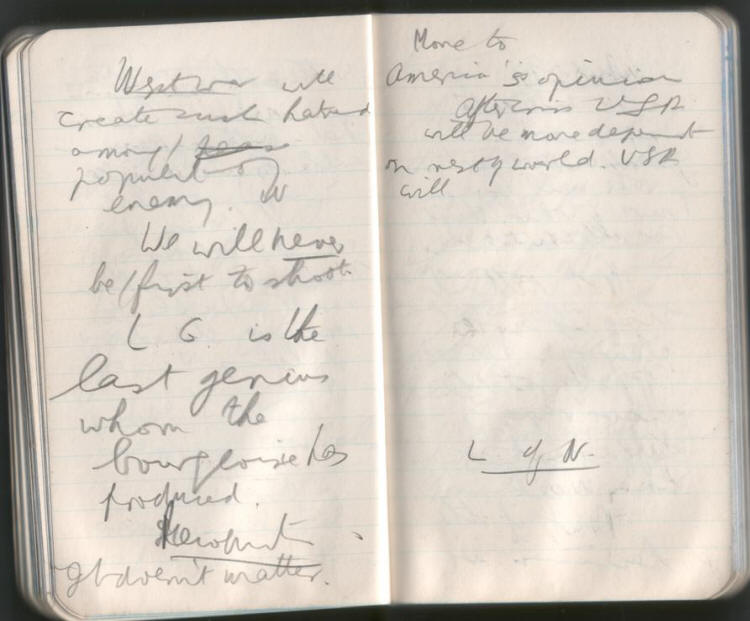 West war will
create such hatred
among /
popul of
enemy. W
We will never
be / first to shoot.
L G. is the
last genius
whom the
bourgeoisie has
produced.
doesn't matter.
More to
America's opinion
After crisis USA
will be more dependent
on rest of world. USA
will
L of N.